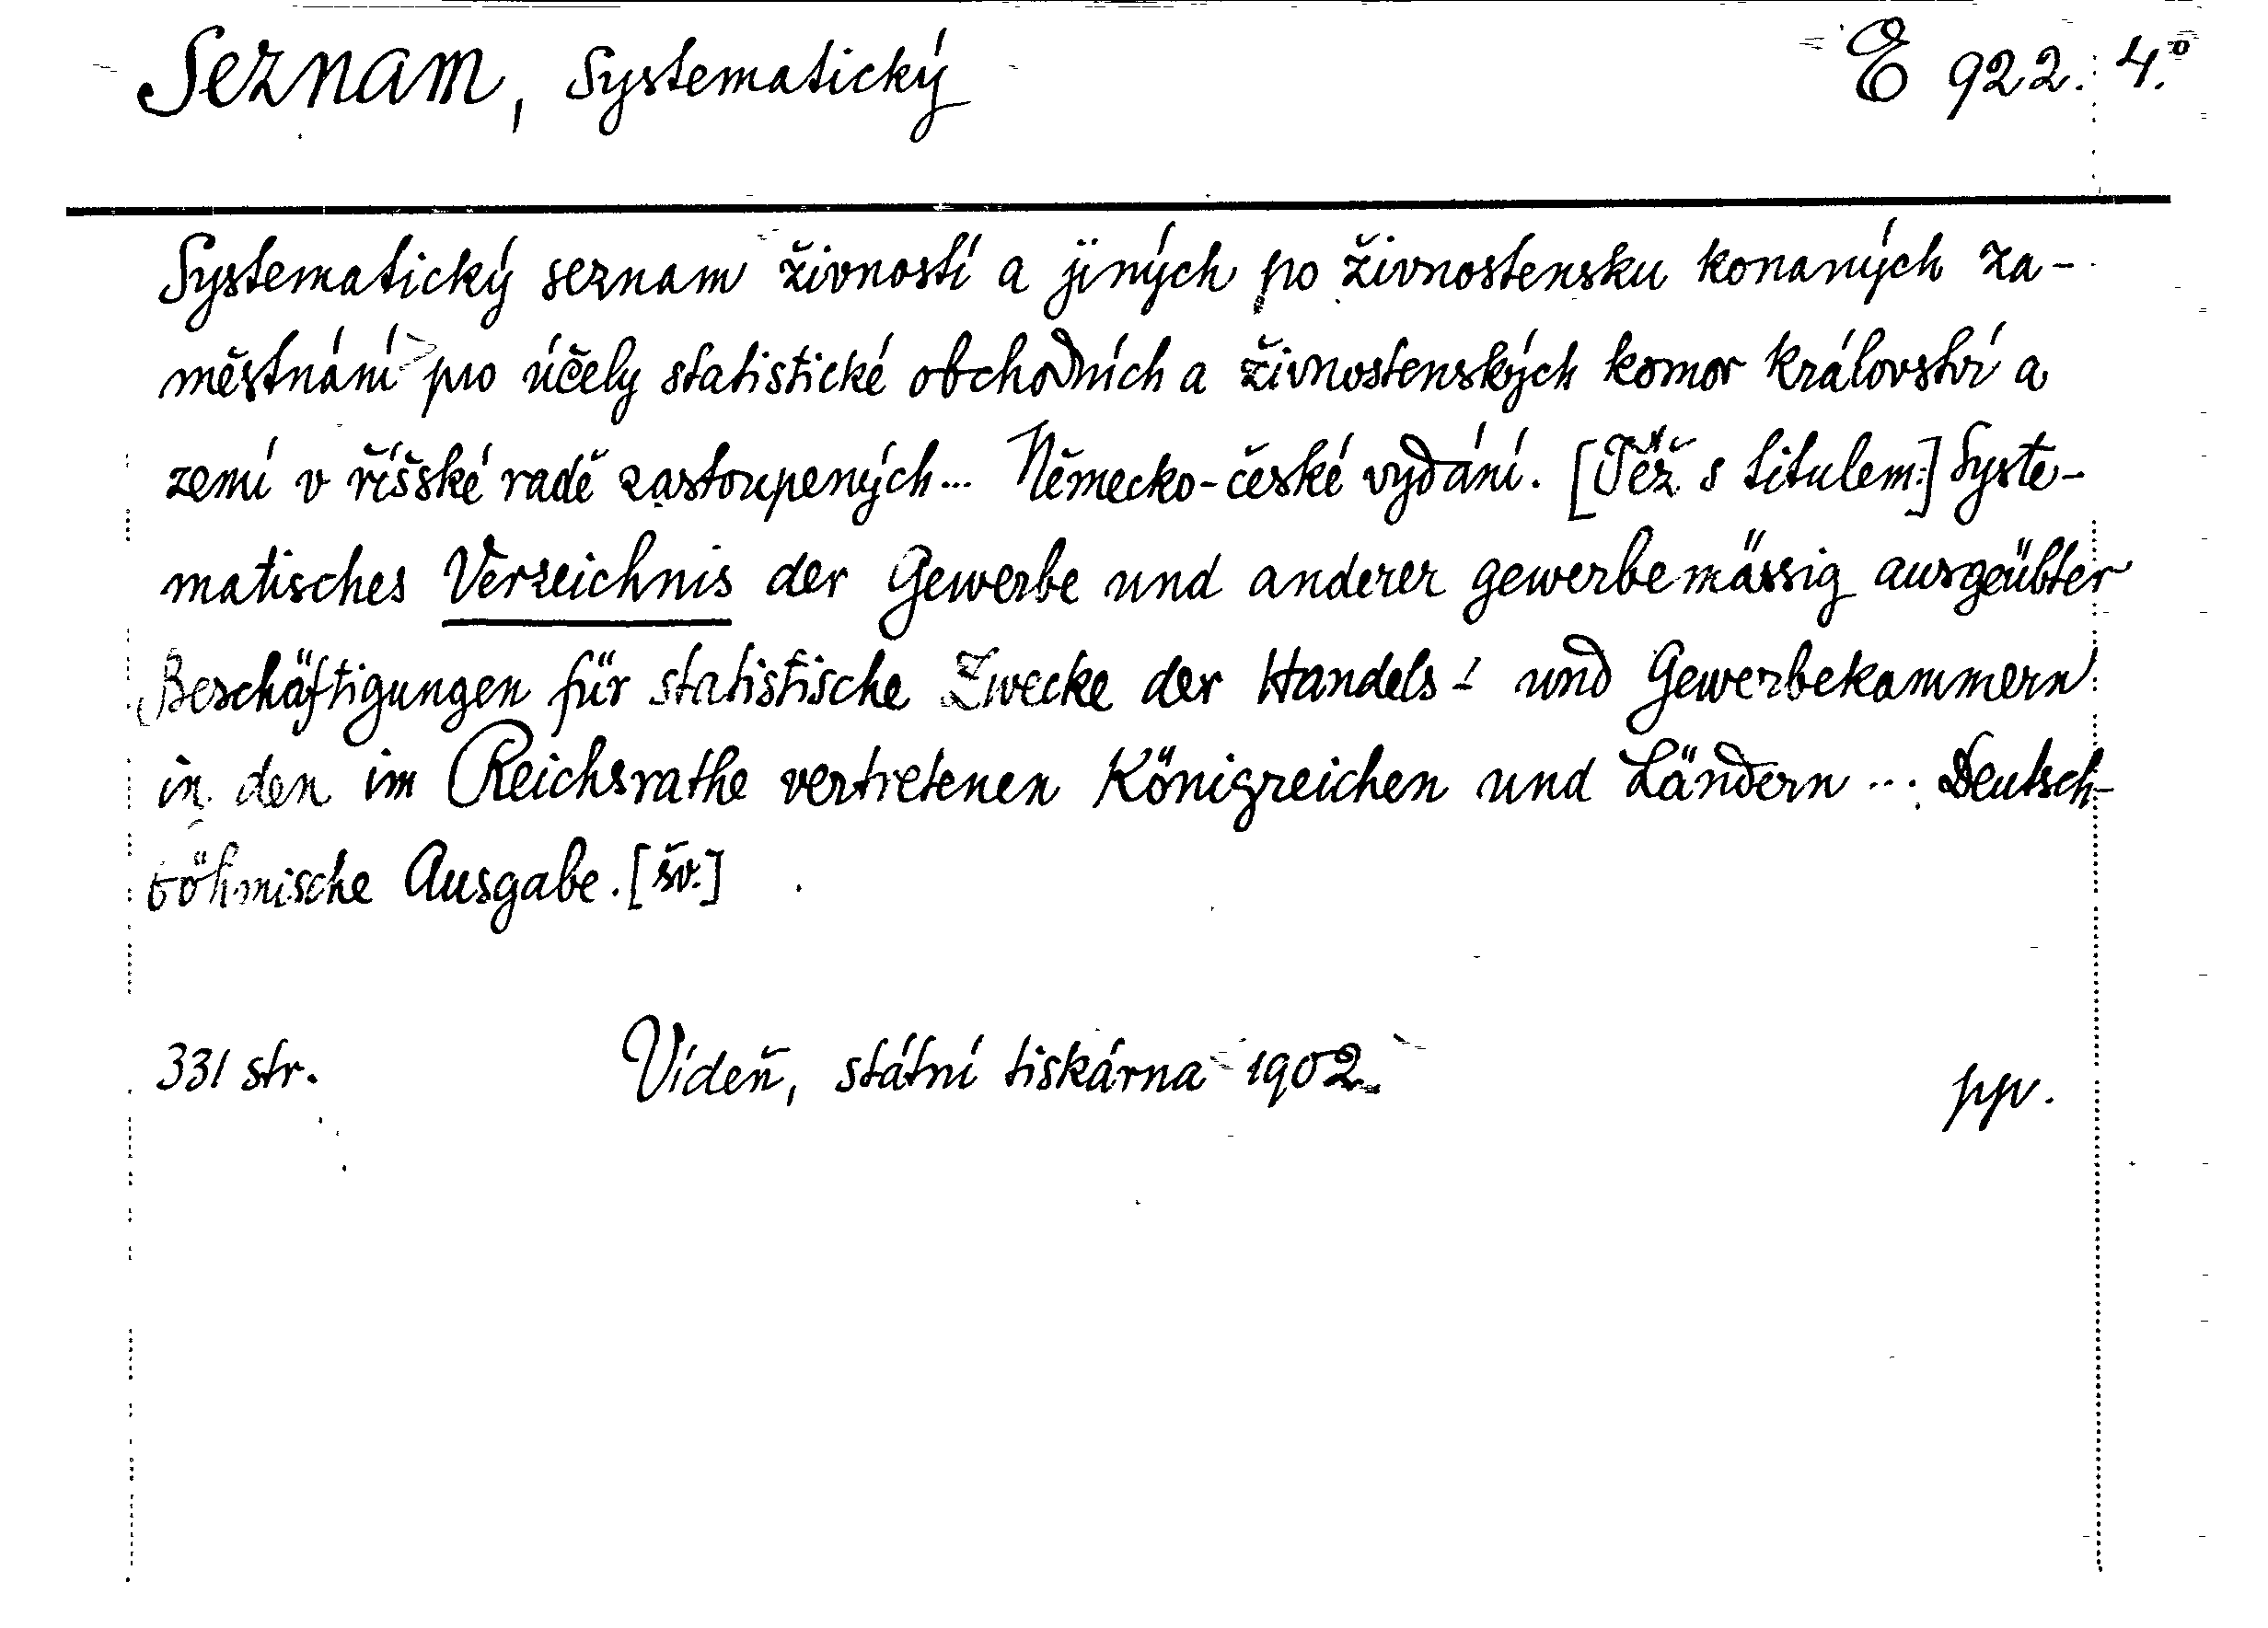 Seznam, Systematický E 922. 4.°
Systematický seznam živností a jiných po živnostensku konaných za-
městnání pro účely statistické obchodních a živnostenských komor království a
zemí v říšské radě zastoupených... Německo-české vydání. [Též s titulem:] Syste-
matisches Verzeichnis der Gewerbe und anderer gewerbemässig ausgeübter
Beschäftigungen für statistische Zwecke der Handels- und Gewerbekammern
in den im Reichsrathe vertretenen Königreichen und Ländern... Deutsch-
böhmische Ausgabe. [šv.]
331 str. Vídeň, státní tiskárna 1902. ppv.